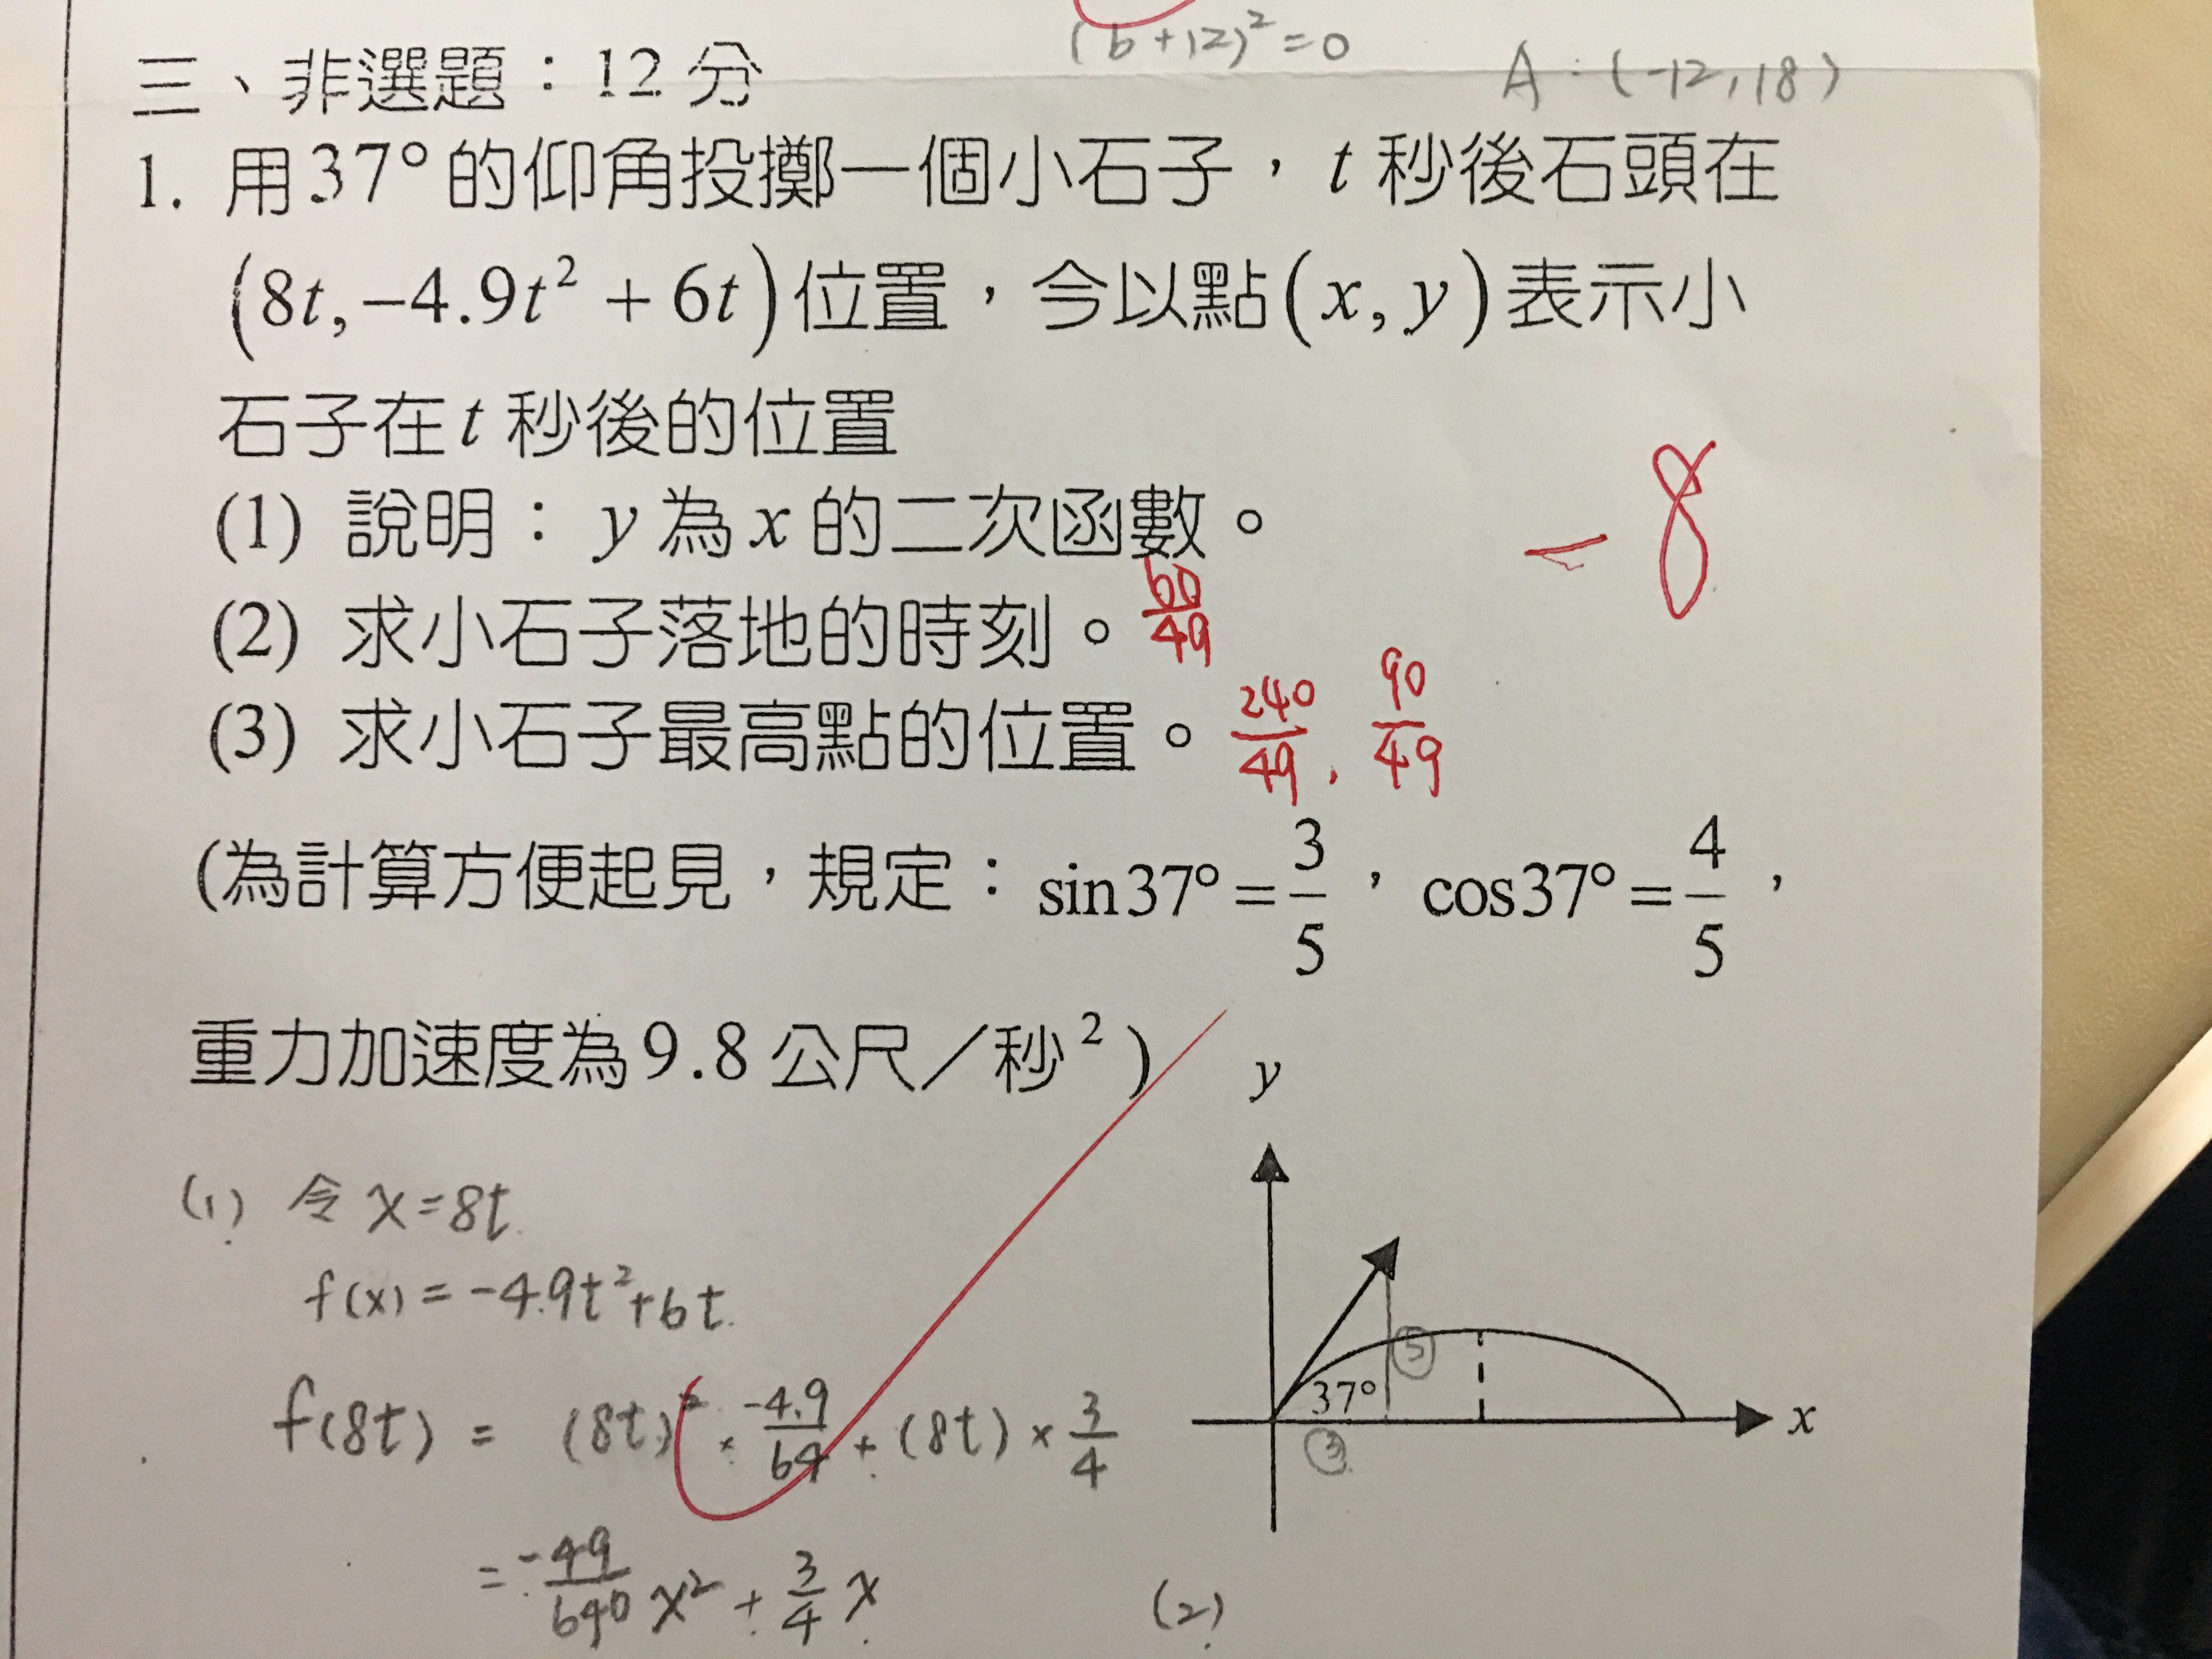 (b+12)²=0
A:(-12,18)
三、非選題：12 分
1. 用37°的仰角投擲一個小石子，t 秒後石頭在
(8t,−4.9t² + 6t)位置，今以點(x, y)表示小
石子在 t 秒後的位置
(1) 說明：y 為 x 的二次函數。
-8
(2) 求小石子落地的時刻。 60/49
(3) 求小石子最高點的位置。 240/49, 90/49
(為計算方便起見，規定：sin37°=3/5，cos37°=4/5，
重力加速度為9.8 公尺／秒²)
y
(1) 令 x=8t.
f(x)=-4.9t²+6t.
37°
⑤
x
③
f(8t) = (8t)² × -4.9/64 + (8t) × 3/4
= -49/640 x² + 3/4 x
(2)